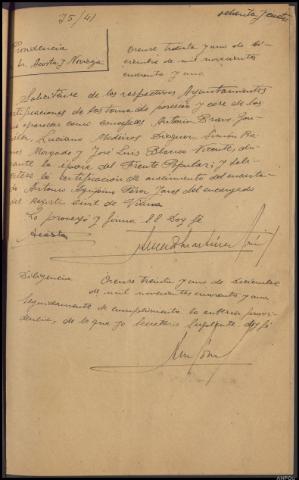 75/41
ochenta y cuatro
Providencia
Sr. Acosta y Noriega
Orense treinta y uno de di-
ciembre de mil novecientos
cuarenta y uno
Solicítense de los respectivos Ayuntamientos
certificaciones de las toma de posesión y cese de los
que aparecen como concejales Antonio Bravo
Luciano Simón
Morgado y José Luis Blanco Vicente, du-
rante la época del Frente Popular; y
la certificación de nacimiento del encarta-
do Antonio Pérez del encargado
del Registro Civil de Viana
Lo proveyó y firma S.S. Doy fé
Acosta
Diligencia Orense treinta y uno de Diciembre
de mil novecientos cuarenta y uno
Seguidamente se cumplimenta la anterior provi-
dencia, de lo que yo Secretario Suplente doy fé